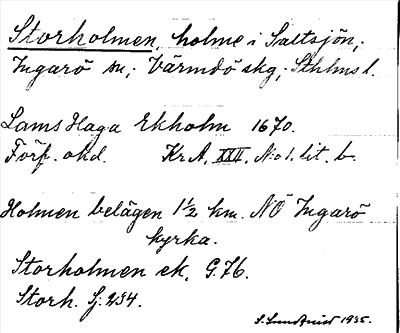 Storholmen, holme i Saltsjön,
Ingarö sn; Värmdö skg; Sthlms l.
Lams Haga Ekholm 1670.
Förf. okd. Kr A, XXII. N:o 1. lit. b.
Holmen belägen 1½ km. NÖ Ingarö
kyrka.
Storholmen ek. G.76.
Storh. Gj: 234.
S. Lundkvist 1935.